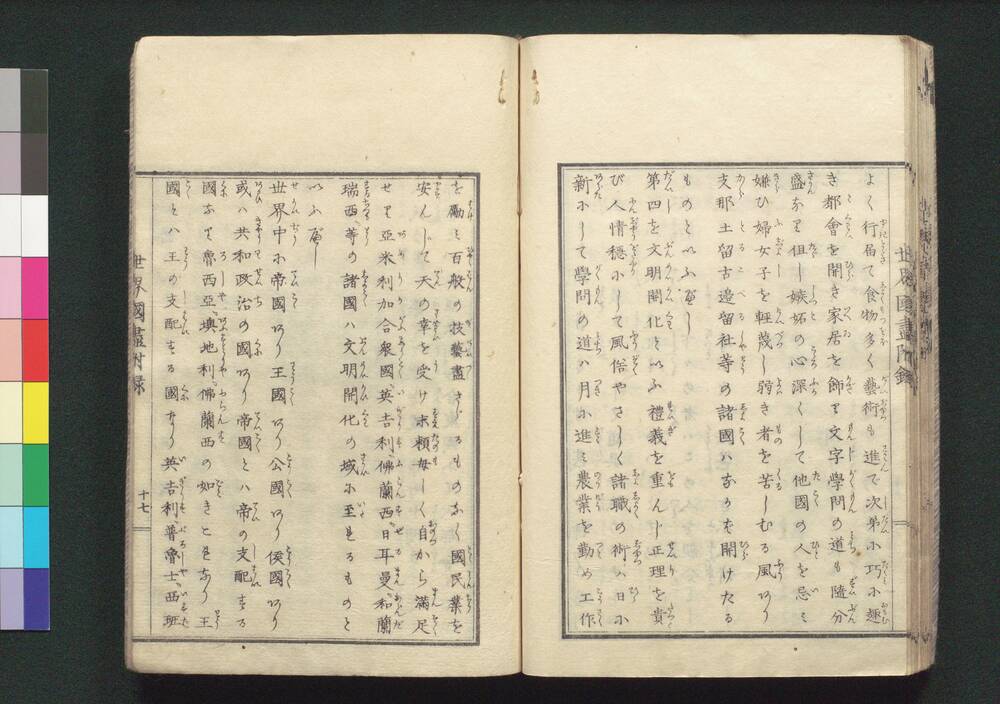 よく行届て食物多く藝術も進で次第に巧に趣
き都會を開き家居を飾り文字學問の道も隨分
盛なり但し嫉妬の心深くして他國の人を忌ミ
嫌ひ婦女子を輕蔑し弱き者を苦しむる風あり
支那土留古邉留社等の諸國ハなかを開けたる
ものといふべし
第四を文明開化といふ禮義を重んじ正理を貴
び人情穏にして風俗やさしく諸職の術ハ日に
新にして學問の道ハ月に進ミ農業を勤め工作
を勵ミ百般の技藝盡さゞるものなく國民業を
安んじて天の幸を受け末頼母しく自から満足
せり亞米利加合衆國英吉利佛蘭西日耳曼和蘭
瑞西等の諸國ハ文明開化の域に至れるものと
いふべし
世界中に帝國あり王國あり公國あり侯國あり
或ハ共和政治の國あり帝國とハ帝の支配する
國なり魯西亞墺地利佛蘭西の如きこれなり王
國とハ王の支配する國なり英吉利普魯士西班
世界國盡附録
十七